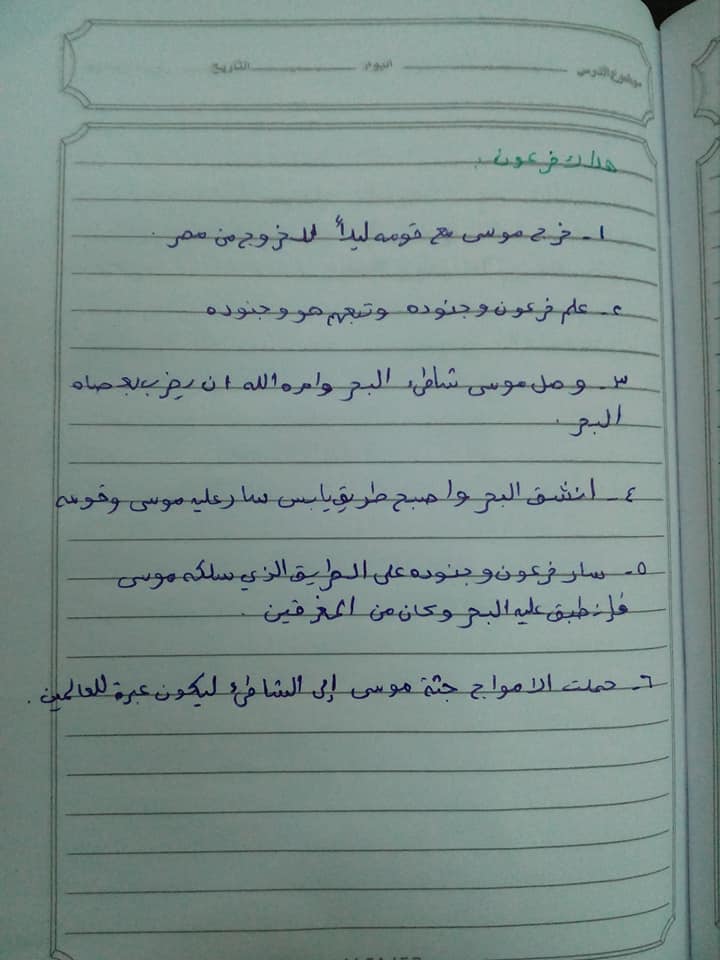 موضوع الدرس اليوم التاريخ
هلاك فرعون .
١- خرج موسى مع قومه ليلاً للخروج من مصر .
٢- علم فرعون وجنوده وتبعهم هو وجنوده
٣- وصل موسى شاطىء البحر وامره الله ان يضرب بعصاه
البحر .
٤- انشق البحر واصبح طريق يابس سار عليه موسى وقومه
٥- سار فرعون وجنوده على الطريق الذي سلكه موسى
فإنطبق عليه البحر وكان من المغرقين .
٦- حملت الامواج جثة موسى إلى الشاطئ ليكون عبرة للعالمين .